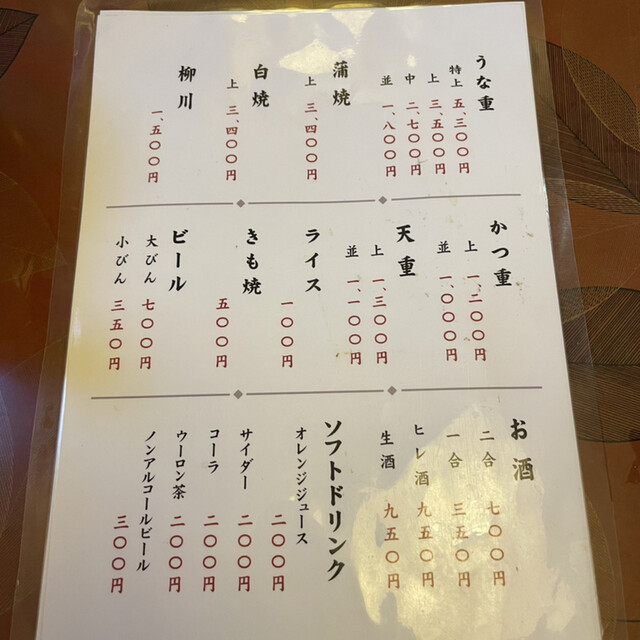 うな重
特上 五、三〇〇円
上 三、五〇〇円
中 二、七〇〇円
並 一、八〇〇円
蒲焼
上 三、四〇〇円
白焼
上 三、四〇〇円
柳川
一、五〇〇円
かつ重
上 一、二〇〇円
並 一、〇〇〇円
天重
上 一、三〇〇円
並 一、一〇〇円
ライス
一〇〇円
きも焼
五〇〇円
ビール
大びん 七〇〇円
小びん 三五〇円
お酒
二合 七〇〇円
一合 三五〇円
ヒレ酒 九五〇円
生酒 九五〇円
ソフトドリンク
オレンジジュース 二〇〇円
サイダー 二〇〇円
コーラ 二〇〇円
ウーロン茶 二〇〇円
ノンアルコールビール 三〇〇円